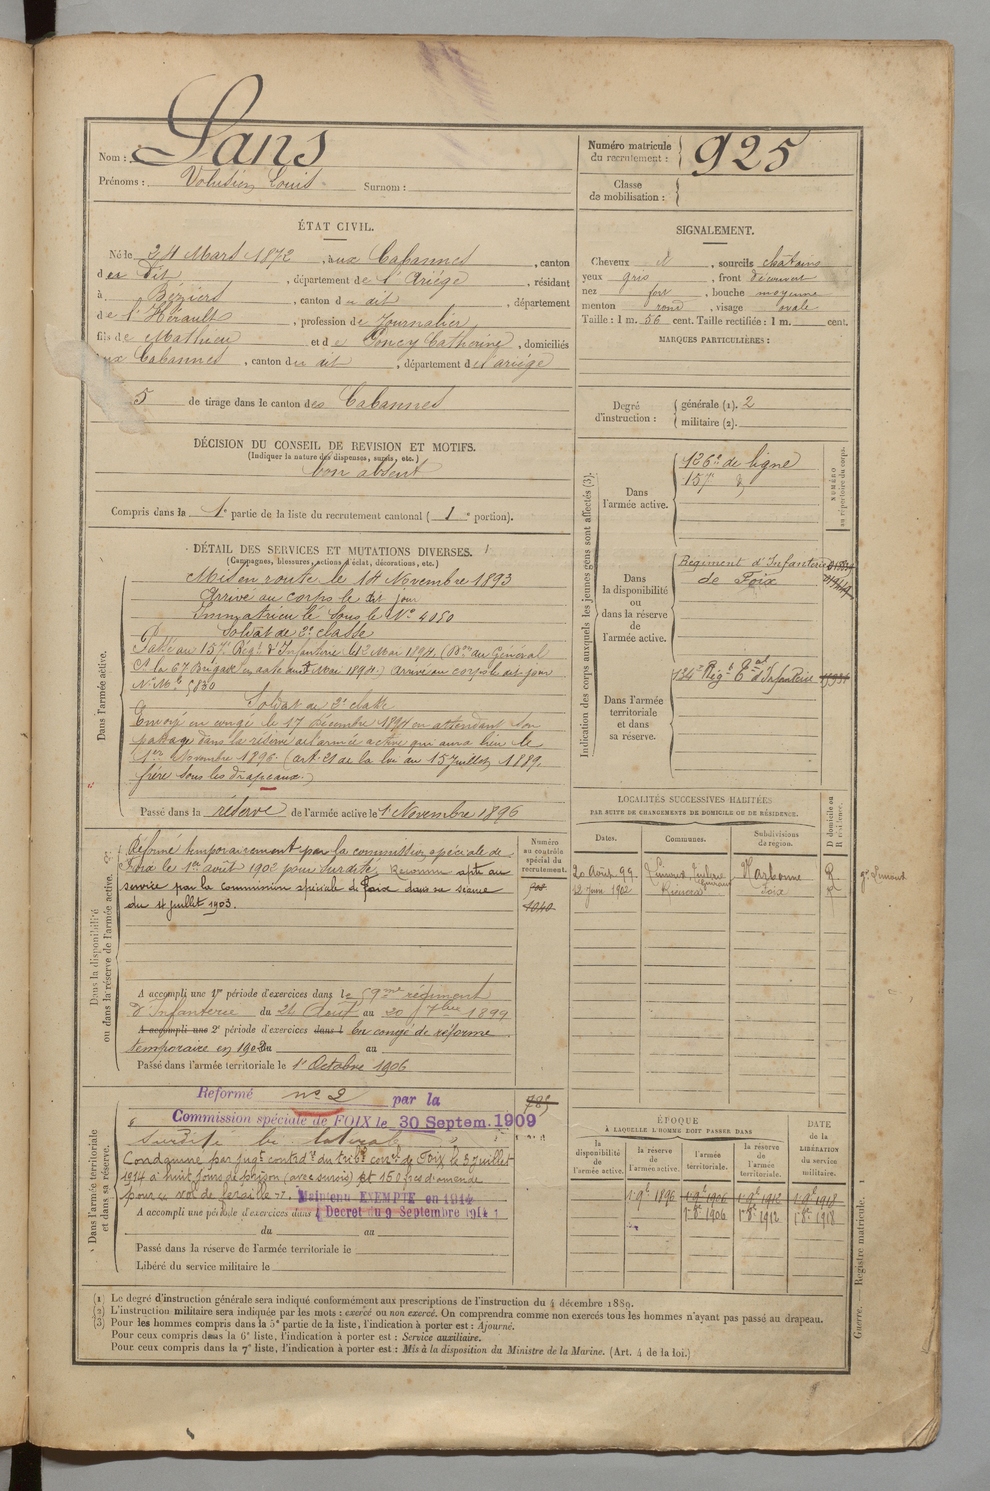 Nom : Sans
Prénoms : Volusien Louis Surnom :
Numéro matricule du recrutement : 925
Classe de mobilisation :
ÉTAT CIVIL.
Né le 24 Mars 1872, aux Cabannes, canton
des dit, département de l'Ariége, résidant
à Béziers, canton du dit, département
de l'Hérault, profession de Journalier
fils de Mathieu et de Poncy Catherine, domiciliés
aux Cabannes, canton du dit, département de l'ariége
5 de tirage dans le canton des Cabannes
DÉCISION DU CONSEIL DE REVISION ET MOTIFS.
(Indiquer la nature des dispenses, sursis, etc.)
bon absent
Compris dans la 1e partie de la liste du recrutement cantonal ( 1e portion).
SIGNALEMENT.
Cheveux et, sourcils chatains
yeux gris, front découvert
nez fort, bouche moyenne
menton rond, visage ovale
Taille : 1 m. 56 cent. Taille rectifiée : 1 m. cent.
MARQUES PARTICULIÈRES :
Degré d'instruction : générale (1). 2
militaire (2).
Indication des corps auxquels les jeunes gens sont affectés (3).
NUMÉRO au répertoire du corps.
Dans l'armée active.
126e de ligne
157e
Dans la disponibilité ou dans la réserve de l'armée active.
Régiment d'Infanterie
de Foix
Dans l'armée territoriale et dans sa réserve.
134e Régt Tal d'Infanterie
DÉTAIL DES SERVICES ET MUTATIONS DIVERSES.
(Campagnes, blessures, actions d'éclat, décorations, etc.)
Dans l'armée active.
Mis en route le 14 Novembre 1893
Arrivé au corps le dit jour
Immatriculé sous le No 4050
Soldat de 2e classe
Passé au 157e Régt d'Infanterie le 12 Mai 1894 (Don du Général
Ct la 67 Brigade en date du 5 Mai 1894) Arrivé au corps le dit jour
No Mle 5830
Soldat de 2e classe
Envoyé en congé le 17 décembre 1894 en attendant son
passage dans la réserve de l'armée active qui aura lieu le
1er Novembre 1896. (art. 21 de la loi du 15 Juillet 1889,
frère sous les drapeaux.)
Passé dans la réserve de l'armée active le 1 Novembre 1896
LOCALITÉS SUCCESSIVES HABITÉES
PAR SUITE DE CHANGEMENTS DE DOMICILE OU DE RÉSIDENCE.
Dates. Communes. Subdivisions de région. D domicile ou R résidence.
20 Août 99. Limoux Narbonne R
12 Juin 1902 Foix R
Dans la disponibilité ou dans la réserve de l'armée active.
Numéro au contrôle spécial du recrutement.
Réformé temporairement par la commission spéciale de
Foix le 1er août 1902 pour surdité. Reconnu apte au
service par la commission spéciale de foix dans sa séance
du 11 juillet 1903.
A accompli une 1re période d'exercices dans le 59me régiment
d'Infanterie du 24 Août au 20 7bre 1899
A accompli une 2e période d'exercices dans l En congé de réforme
temporaire en 1902 du au
Passé dans l'armée territoriale le 1er Octobre 1906
Dans l'armée territoriale et dans sa réserve.
Reformé no 2 par la
Commission spéciale de FOIX le 30 Septem. 1909
surdité bi latérale
Condamné par jugt contradre du tribal corel de Foix le 3 juillet
1914 à huit jours de prison (avec sursis) et 150 frcs d'amende
pour vol de feraille.
Maintenu EXEMPTÉ en 1914
Décret du 9 Septembre 1914
A accompli une période d'exercices dans l
du au
Passé dans la réserve de l'armée territoriale le
Libéré du service militaire le
ÉPOQUE
À LAQUELLE L'HOMME DOIT PASSER DANS
la disponibilité de l'armée active. la réserve de l'armée active. l'armée territoriale. la réserve de l'armée territoriale. DATE de la LIBÉRATION du service militaire.
1 9e 1896 1 9e 1906 1 9e 1912 1 9e 1918
1 8e 1906 1 8e 1912 1 8e 1918
(1) Le degré d'instruction générale sera indiqué conformément aux prescriptions de l'instruction du 4 décembre 1889.
(2) L'instruction militaire sera indiquée par les mots : exercé ou non exercé. On comprendra comme non exercés tous les hommes n'ayant pas passé au drapeau.
(3) Pour les hommes compris dans la 5e partie de la liste, l'indication à porter est : Ajourné.
Pour ceux compris dans la 6e liste, l'indication à porter est : Service auxiliaire.
Pour ceux compris dans la 7e liste, l'indication à porter est : Mis à la disposition du Ministre de la Marine. (Art. 4 de la loi.)
Guerre. — Registre matricule. 1